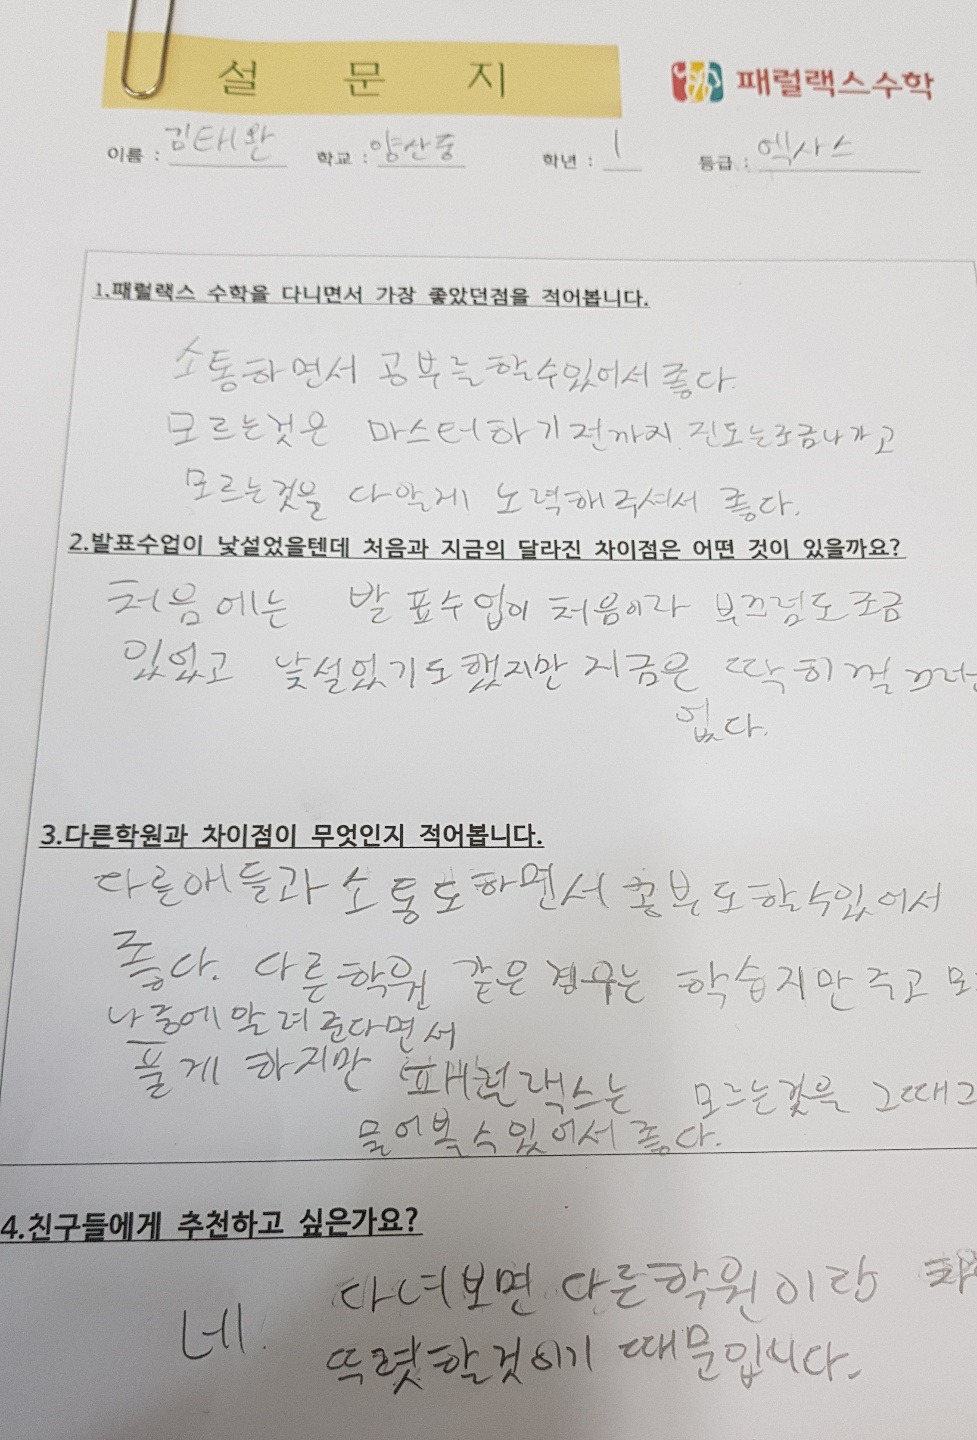 설 문 지
패럴랙스수학
이름 : 김태완 학교 : 양산중 학년 : 1 등급 : 엑사스
1.패럴랙스 수학을 다니면서 가장 좋았던점을 적어봅니다.
소통하면서 공부를 할수있어서 좋다.
모르는것은 마스터하기전까지 진도는조금나가고
모르는것을 다알게 노력해주셔서 좋다.
2.발표수업이 낯설었을텐데 처음과 지금의 달라진 차이점은 어떤 것이 있을까요?
처음에는 발표수업이 처음이라 부끄럼도조금
있었고 낯설었기도했지만 지금은 딱히
없다.
3.다른학원과 차이점이 무엇인지 적어봅니다.
다른애들과 소통도하면서 공부도할수있어서
좋다. 다른학원 같은 경우는 학습지만주고
나중에알려준다면서
풀게 하지만 패럴랙스는 모르는것을
물어볼수있어서좋다.
4.친구들에게 추천하고 싶은가요?
네. 다녀보면 다른학원이랑
뚜렷할것이기 때문입니다.